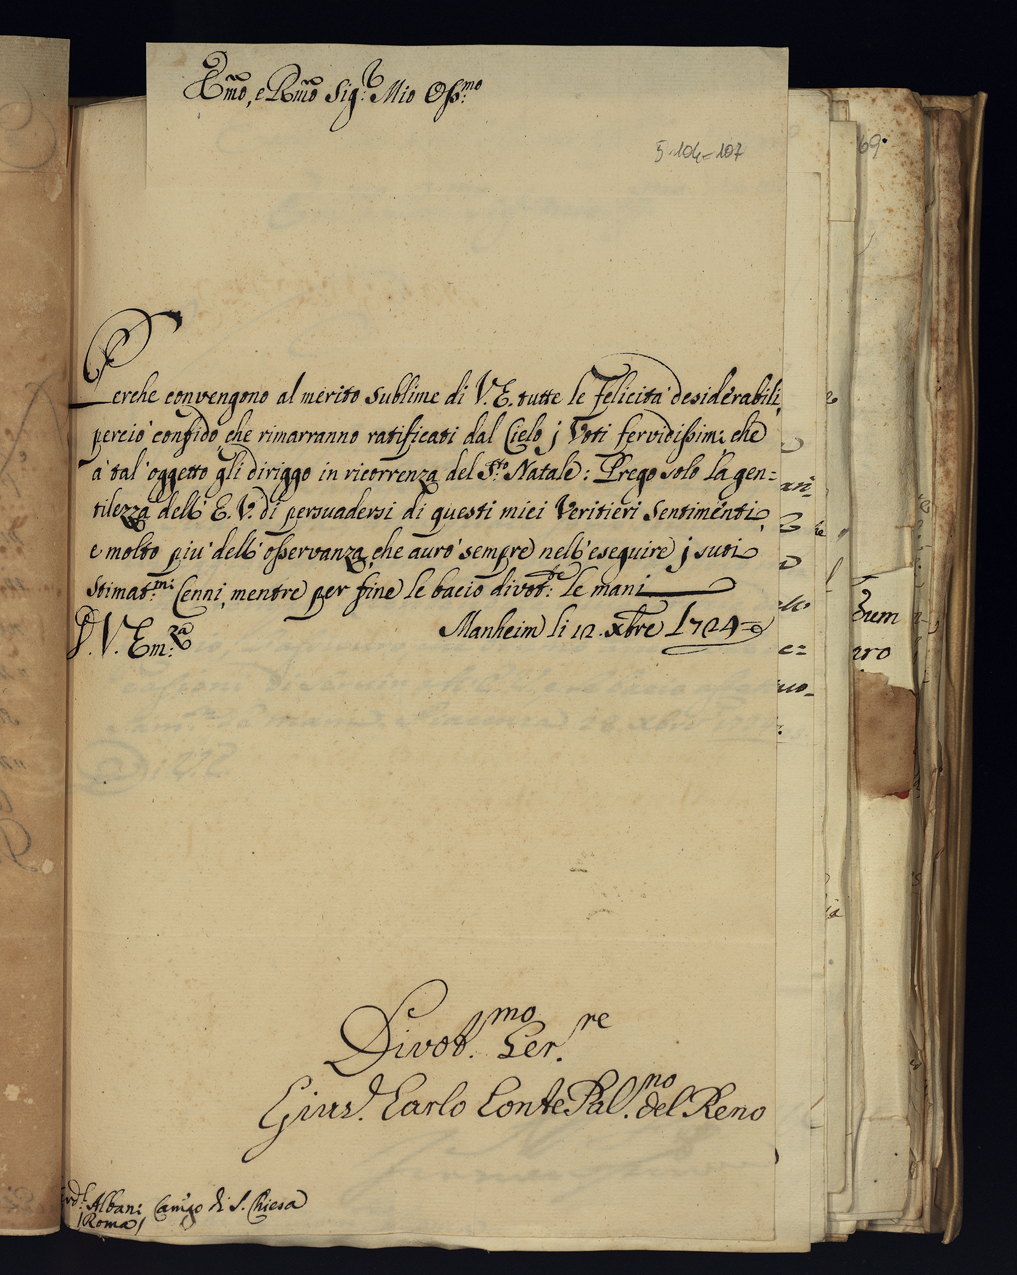 Em̃o, e Rm̃o Sig:r Mio Oss:mo
5-104-107
Perche convengono al merito sublime di V. E. tutte le felicità desiderabili,
perciò confido che rimarranno ratificati dal Cielo j Voti fervidissimi che
à tal' oggetto gli diriggo in ricorrenza del S:to Natale: Prego solo la gen=
tilezza dell' E. V. di persuadersi di questi miei Veritieri Sentimenti,
e molto più dell' osservanza, che aurò sempre nell' eseguire j suoi
Stimat:mi Cenni, mentre per fine le bacio divot:te le mani
D. V. Em:za
Manheim li 12. Xbre 1724
Divot.mo Ser.re
Gius. Carlo Conte Pal.no del Reno
Albani Cam.go di S. Chiesa
/Roma/
69.